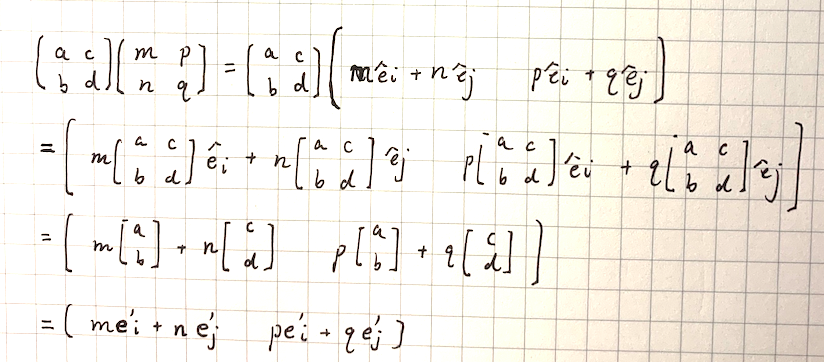 [a c; b d][m p; n q] = [a c; b d](mêi + nêj  pêi + qêj)
= [m[a c; b d]êi + n[a c; b d]êj  p[a c; b d]êi + q[a c; b d]êj]
= [m[a; b] + n[c; d]  p[a; b] + q[c; d]]
= [me'i + ne'j  pe'i + qe'j]